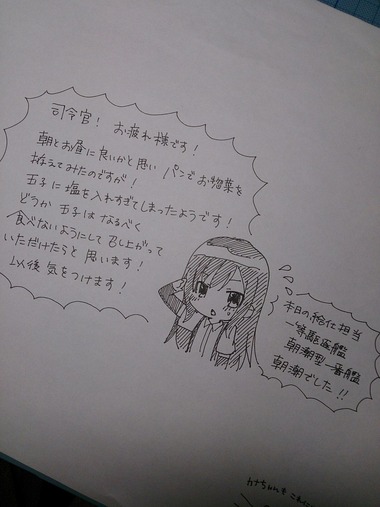 司令官! お疲れ様です!
朝とお昼に良いかと思い パンでお惣菜を
拵えてみたのですが!
玉子に塩を入れすぎてしまったようです!
どうか 玉子は なるべく
食べないようにして召し上がって
いただけたらと 思います!
以後 気をつけます!
本日の給仕担当
一等駆逐艦
朝潮型一番艦
朝潮でした!!